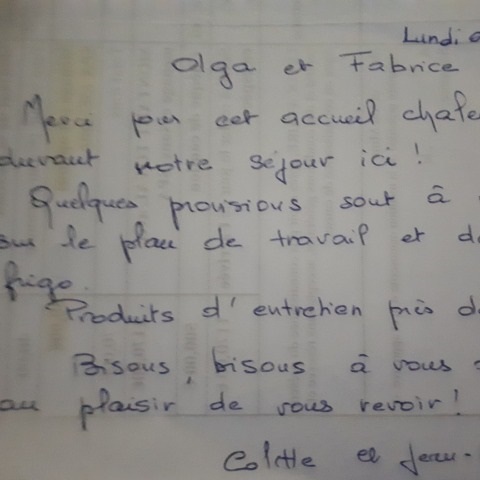 Lundi
Olga et Fabrice
Merci pour cet accueil chale
durant votre séjour ici !
Quelques provisions sont à
sur le plan de travail et d
frigo.
Produits d'entretien près d
Bisous, bisous à vous
au plaisir de vous revoir !
Colette et Jean-